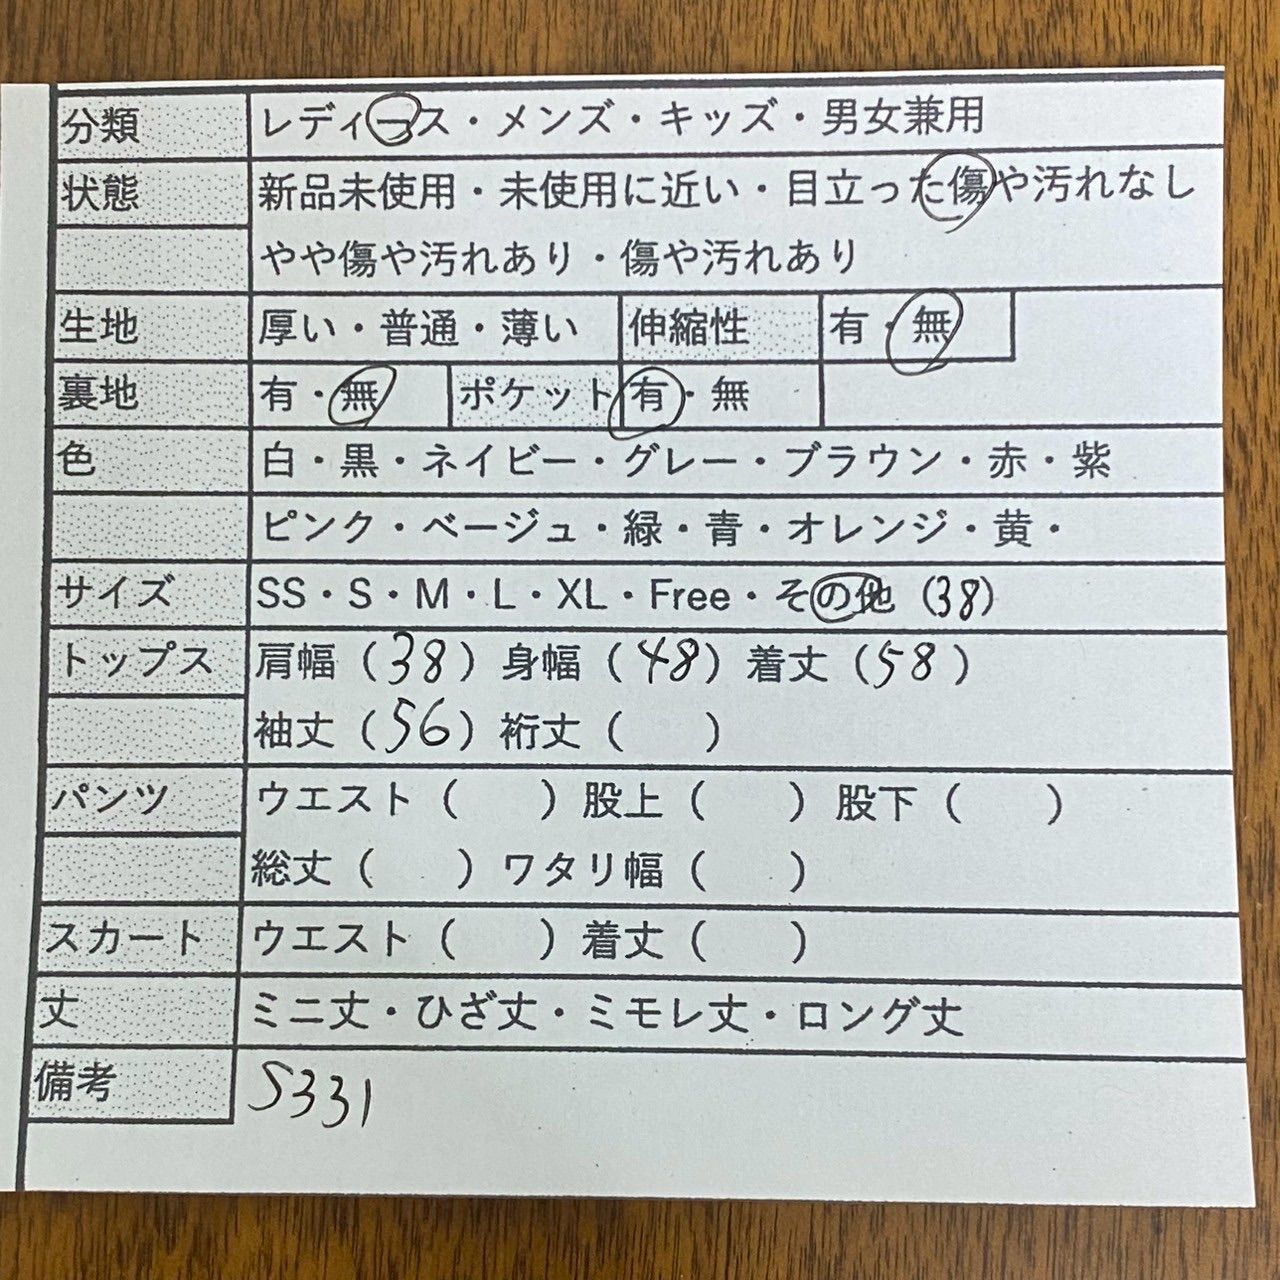 分類 レディース・メンズ・キッズ・男女兼用
状態 新品未使用・未使用に近い・目立った傷や汚れなし
やや傷や汚れあり・傷や汚れあり
生地 厚い・普通・薄い 伸縮性 有・無
裏地 有・無 ポケット 有・無
色 白・黒・ネイビー・グレー・ブラウン・赤・紫
ピンク・ベージュ・緑・青・オレンジ・黄・
サイズ SS・S・M・L・XL・Free・その他（38）
トップス 肩幅（38）身幅（48）着丈（58）
袖丈（56）裄丈（　）
パンツ ウエスト（　）股上（　）股下（　）
総丈（　）ワタリ幅（　）
スカート ウエスト（　）着丈（　）
丈 ミニ丈・ひざ丈・ミモレ丈・ロング丈
備考 S331